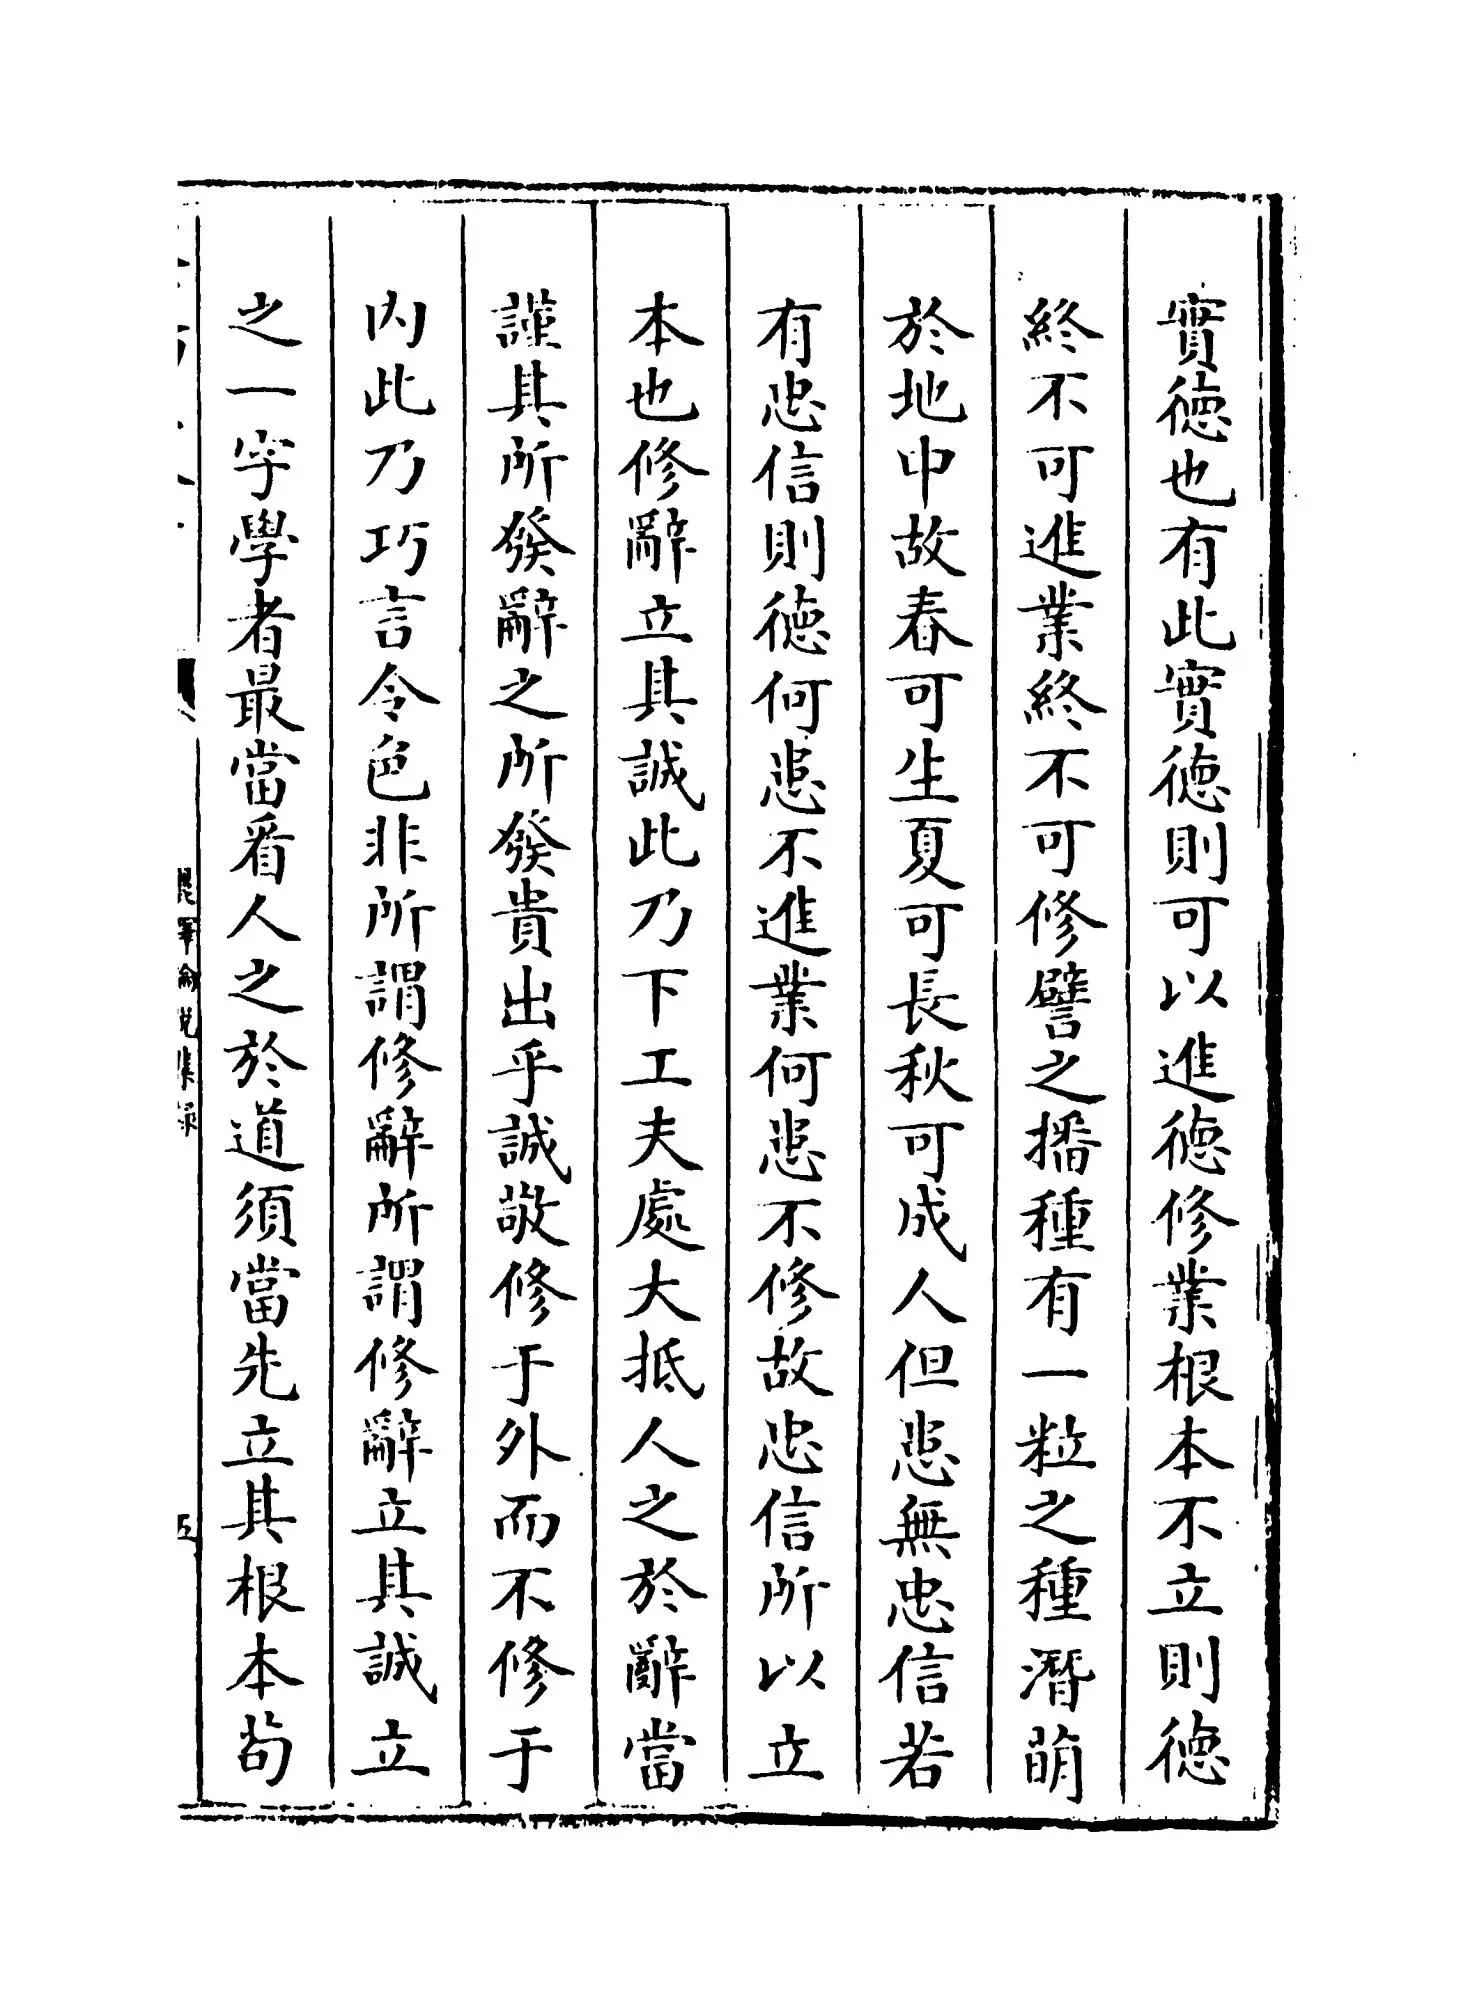 實德也有此實德則可以進德修業根本不立則德
終不可進業終不可修譬之播種有一粒之種潛萌
於地中故春可生夏可長秋可成人但患無忠信若
有忠信則德何患不進業何患不修故忠信所以立
本也修辭立其誠此乃下工夫處大抵人之於辭當
謹其所發辭之所發貴出乎誠敬修于外而不修于
内此乃巧言令色非所謂修辭所謂修辭立其誠立
之一字學者最當看人之於道須當先立其根本苟
麗澤論說集錄
五